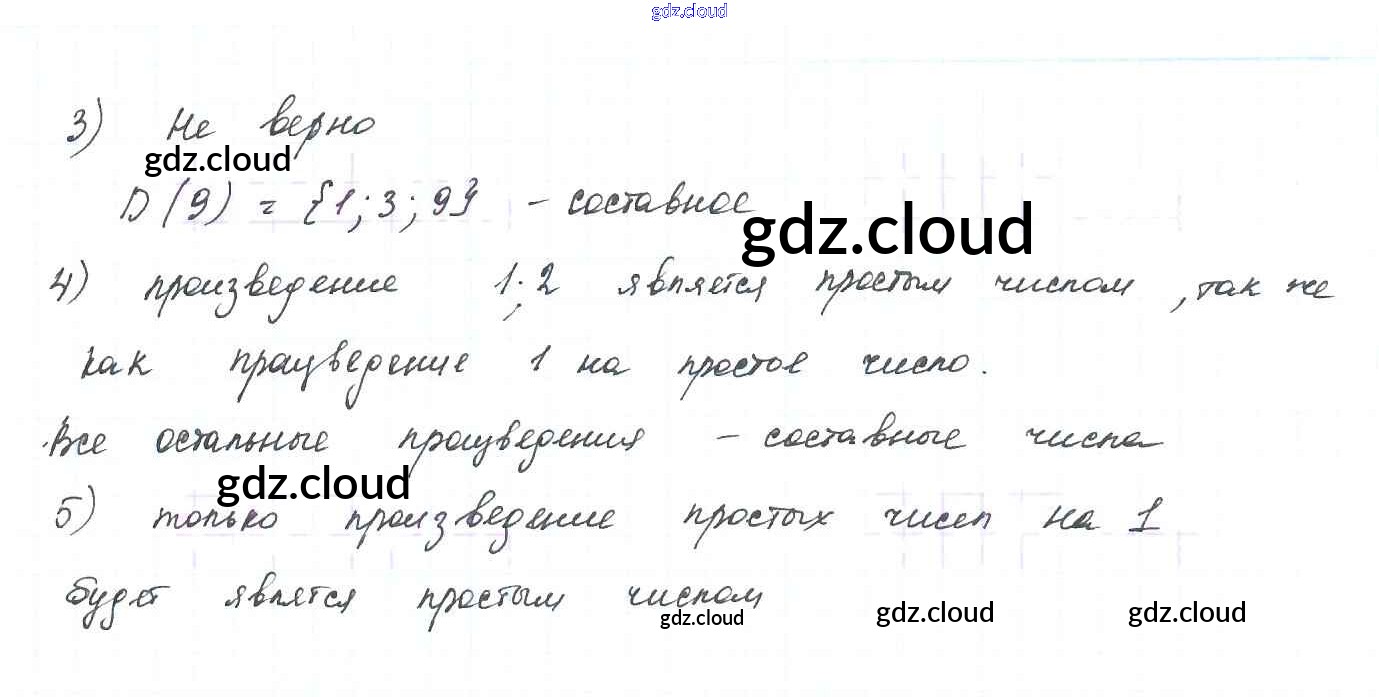 gdz.cloud
3) Не верно
gdz.cloud
D(9) = {1; 3; 9} - составное
gdz.cloud
4) произведение 1; 2 является простым числом, так же
как произведение 1 на простое число.
Все остальные произведения - составные числа
gdz.cloud
5) только произведение простых чисел на 1
будет являтся простым числом
gdz.cloud gdz.cloud gdz.cloud